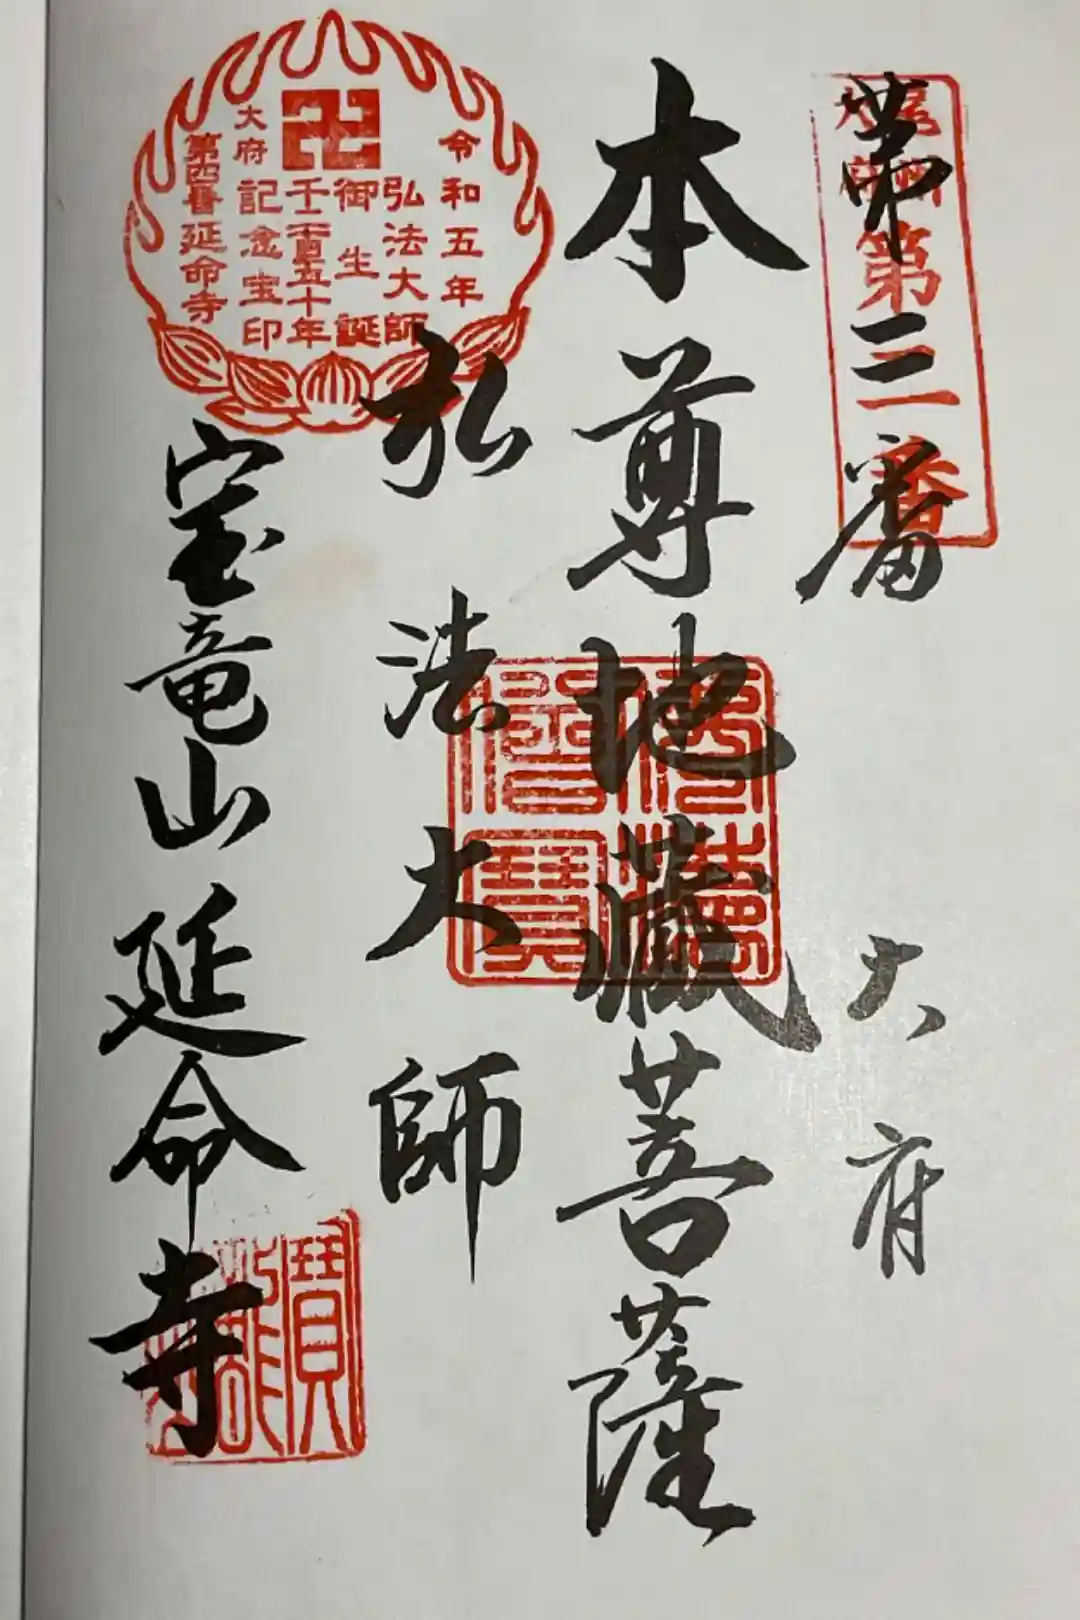 第三番 大府
第三番
本尊地蔵菩薩
弘法大師
宝竜山延命寺
卍
令和五年
弘法大師
御生誕
千二百五十年
記念宝印
大府
第四番延命寺
佛法僧寶